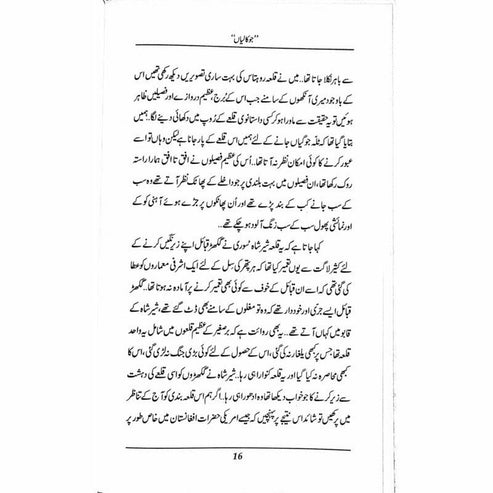 "جوکالیاں"
سے باہر نکلا جاتا تھا... میں نے قلعہ روہتاس کی بہت ساری تصویریں دیکھ رکھی تھیں اس
کے باوجود میری آنکھوں کے سامنے جب اس کے بُرج، عظیم دروازے اور فصیلیں ظاہر
ہوئیں تو یہ حقیقت سے ماورا ہو کر کسی داستانوی قلعے کے رُوپ میں دکھائی دینے لگا۔ ہمیں
بتایا گیا تھا کہ ٹلّہ جوگیاں جانے کے لئے ہمیں اس قلعے کے پار جانا ہے لیکن وہاں تو اسے
عبور کرنے کا کوئی امکان نظر نہ آتا تھا۔ اُس کی عظیم فصیلوں نے افق تا افق ہمارا راستہ
روک رکھا تھا، ان فصیلوں میں بہت بلندی پر جو داخلے کے پھاٹک نظر آتے تھے وہ سب
کے سب جانے کب کے بند پڑے تھے اور اُن پھاٹکوں پر جڑے ہوئے آہنی کوکے
اور نمائشی پھول سب کے سب زنگ آلود ہو چکے تھے...
کہا جاتا ہے کہ یہ قلعہ شیر شاہ سُوری نے گکھڑ قبائل اپنے زیرِنگیں کرنے کے
لئے کثیر لاگت سے یوں تعمیر کیا تھا کہ ہر پتھر کی سل کے لئے ایک اشرفی معماروں کو عطا
کی گئی تھی کہ اسے ان قبائل کے خوف سے کوئی بھی تعمیر کرنے پر آمادہ نہ ہوتا تھا۔ گکھڑ
قبائل ایسے جرّی اور خوددار تھے کہ وہ تو مغلوں کے سامنے بھی ڈٹ گئے تھے، شیر شاہ کے
قابو میں کہاں آتے تھے... یہ بھی روایت ہے کہ برصغیر کے عظیم قلعوں میں شامل یہ واحد
قلعہ تھا جس پر کبھی یلغار نہ کی گئی، اس کے حصول کے لئے کوئی بڑی جنگ نہ لڑی گئی، اس کا
کبھی محاصرہ نہ کیا گیا اور یہ قلعہ کنوارا ہی رہا۔ شیر شاہ نے گکھڑوں کو اسی قلعے کی دہشت
سے زیر کرنے کا جو خواب دیکھا تھا وہ ادھورا ہی رہا۔ اگر ہم اس قلعہ بندی کو آج کے تناظر
میں پرکھیں تو شائد اس نتیجے پر پہنچیں کہ جیسے امریکی حضرات افغانستان میں خاص طور پر
16